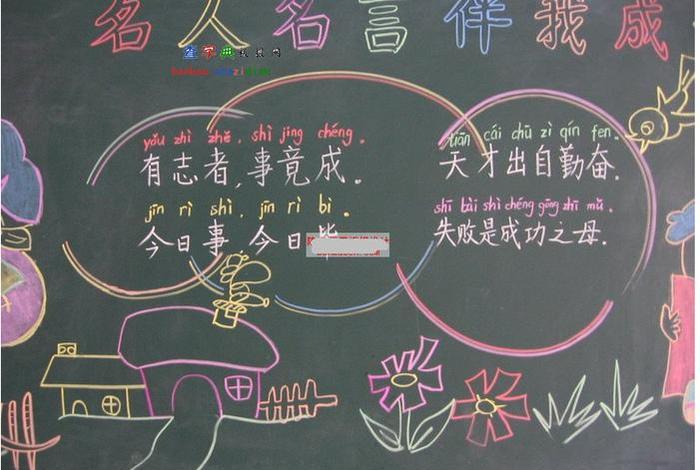 名人名言伴我成
查字典
yǒu zhì zhě, shì jìng chéng.
有志者,事竟成。
jīn rì shì, jīn rì bì.
今日事,今日毕
tiān cái chū zì qín fèn.
天才出自勤奋.
shī bài shì chéng gōng zhī mǔ.
失败是成功之母.